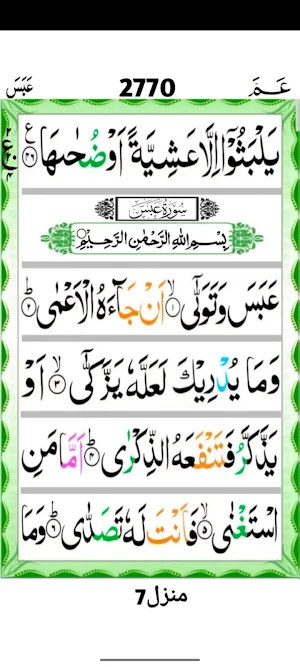 عَبَسَ 2770 عَـمَّ
يَلْبَثُوْۤا اِلَّا عَشِيَّةً اَوْ ضُحٰىهَا ۟ ﴿۴۶﴾
سُوْرَةُ عَبَسَ
بِسْمِ اللّٰهِ الرَّحْمٰنِ الرَّحِيْمِ
عَبَسَ وَتَوَلّٰۤى ۙ﴿۱﴾ اَنْ جَآءَهُ الْاَعْمٰى ؕ﴿۲﴾
وَمَا يُدْرِيْكَ لَعَلَّهٗ يَزَّكّٰۤى ۙ﴿۳﴾ اَوْ
يَذَّكَّرُ فَتَنْفَعَهُ الذِّكْرٰى ؕ﴿۴﴾ اَمَّا مَنِ
اسْتَغْنٰى ۙ﴿۵﴾ فَاَنْتَ لَهٗ تَصَدّٰى ؕ﴿۶﴾ وَمَا
منزل7